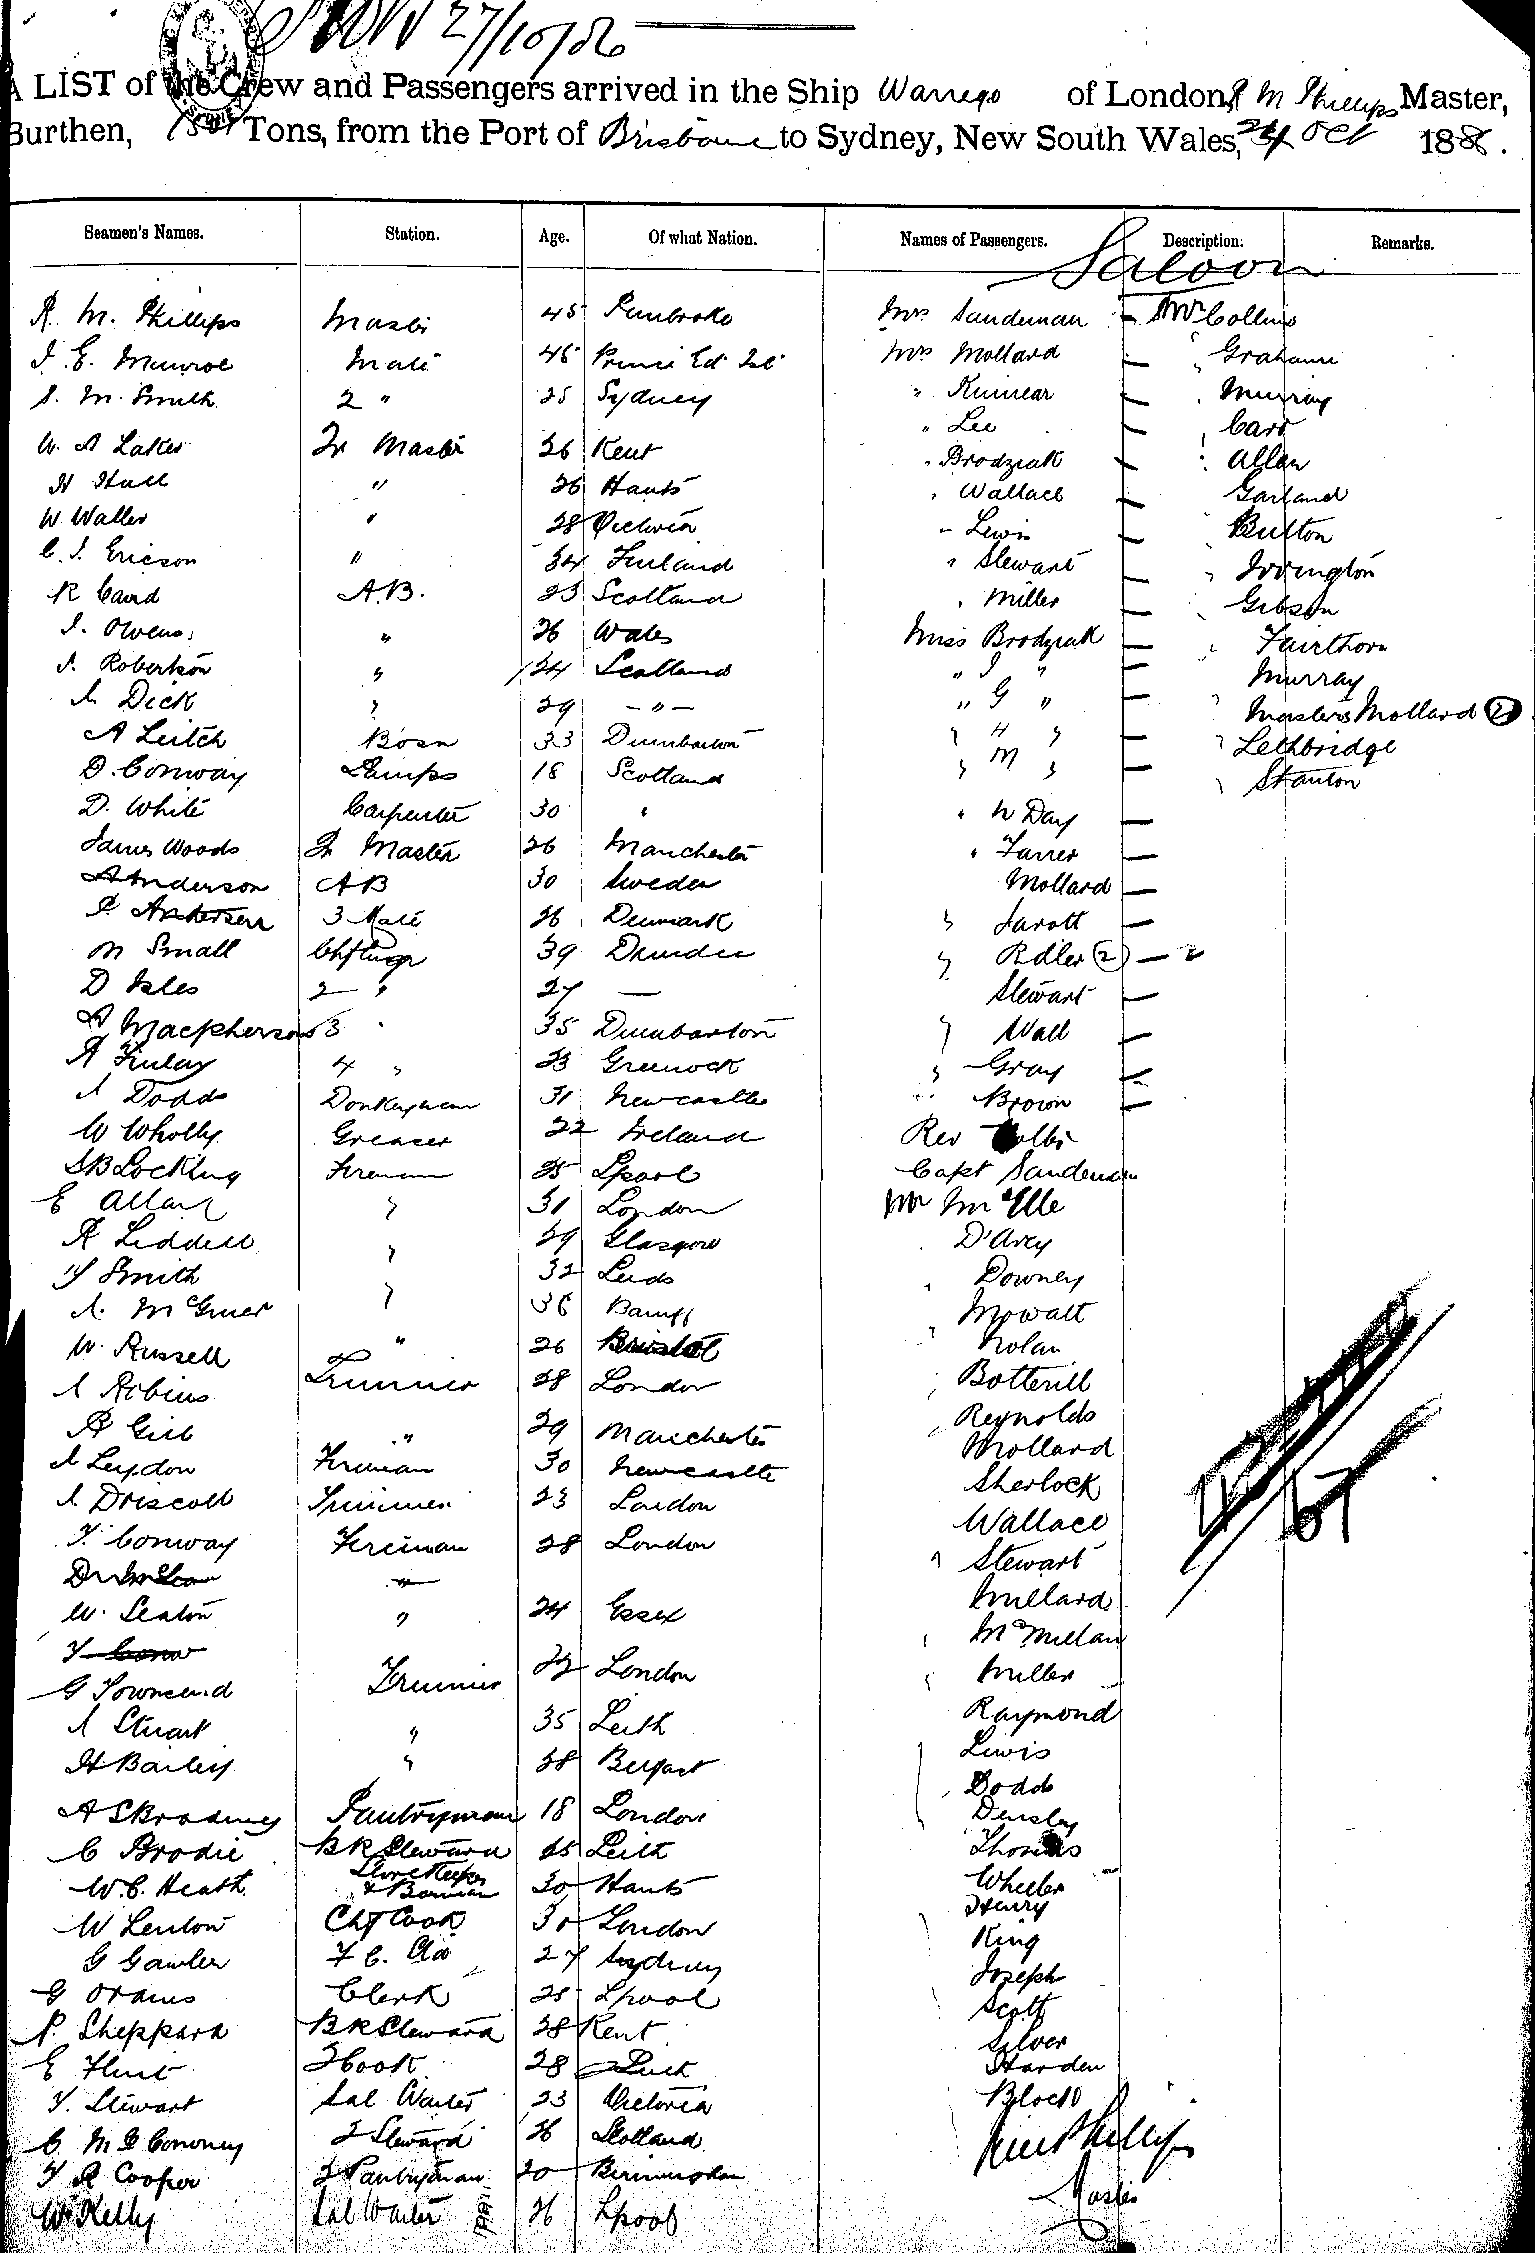 27/10/86
A LIST of the Crew and Passengers arrived in the Ship Warrego of London, R M Phillips Master,
Burthen, Tons, from the Port of Brisbane to Sydney, New South Wales, 24 Oct 188 .
Seamen's Names. Station. Age. Of what Nation. Names of Passengers. Description. Remarks.
Saloon
R. M. Phillips Master 45 Pembroke Mrs Sandeman — Mr Collins
J. E. Munroe Mate 46 Prince Ed Isl Mrs Mollard — " Grahame
S. M. Smith 2 " 25 Sydney " Kinnear — " Murray
W. A Lakes Qr Master 26 Kent " Lee — " Carr
H Hall " 26 Hants " Brodziak — " Allan
W. Waller " 28 Victoria " Wallace — Garland
C. J. Ericson " 34 Finland " Lewis — Button
R Caird A.B. 23 Scotland " Stewart — " Irvington
J. Owens " 26 Wales " Miller — " Gibson
J. Robertson " 24 Scotland Miss Brodziak — " Fairthorn
A. Dick " 29 — " — " J " — Murray
A Leitch Bosn 33 Dumbarton " G " — " Masters Mollard (2)
D. Conway Lamps 18 Scotland " H " — " Lethbridge
D. White Carpenter 30 " " M " — " Stanton
James Woods Qr Master 26 Manchester " W Day —
A Anderson AB 30 Sweden " Farrer —
P. Andersen 3 Mate 26 Denmark Mollard —
M Small Chf Engr 39 Dundee " Jarott —
D Isles 2 " 27 — " Ridler (2) — 2
A Macpherson 3 " 35 Dumbarton Stewart —
A Finlay 4 " 23 Greenock " Wall —
J Dodds Donkeyman 31 Newcastle " Gray —
W Wholly Greaser 22 Ireland " Brown —
S B Locking Fireman 25 Lpool Rev
E Allan " 31 London Capt Sandeman
R Liddell " 29 Glasgow Mr McElle
Smith " 32 Leeds D'Arcy
A. McGruer " 36 Banff " Downey
W. Russell " 26 Bristol Mowatt
J Robins Trimmer 28 London " Nolan
R Gill " 29 Manchester " Botterill
J Leydon Fireman 30 Newcastle " Reynolds
J Driscoll Trimmer 23 London Mollard
T. Conway Fireman 28 London Sherlock
" Wallace
W. Seaton " 24 Essex " Stewart
Millard
G Townsend Trimmer London " McMillan
J Stuart " 35 Leith " Miller
H Bailey " 28 Belfast Raymond
Pantryman 18 London Lewis
C Brodie BR Steward 25 Leith Dodds
W. C. Heath Storekeeper & Barman 30 Hants Densley
W Lenton Chf Cook 30 London Thomas
G Gawler 27 Sydney Wheeler
G Orams Clerk 25 Lpool Henry
P. Sheppard BR Steward 28 Kent King
E Flint 2 Cook 28 Leith Joseph
T. Stewart Sal Waiter 23 Victoria Scott
C. 2 Steward 26 Scotland Silver
T R Cooper 2 Pantryman 20 Birmingham Harden
W. Kelly Sal Waiter 26 Lpool Block
67
Phillips
Master